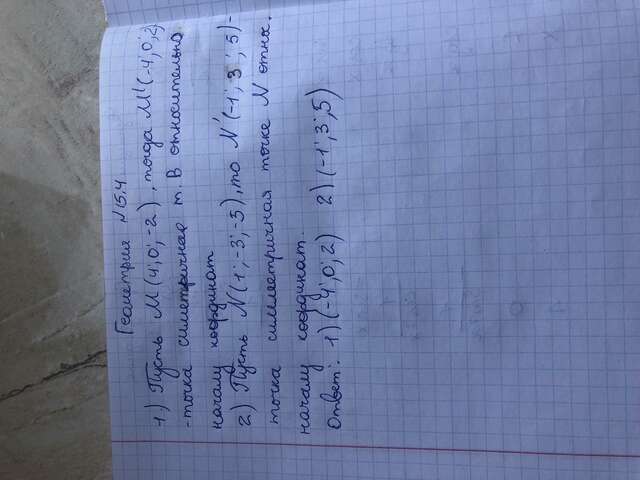 Геометрия №15.4
1) Пусть M(4; 0; -2), тогда M'(-4; 0; 2)
-точка симетричная т. В относительно
началу координат
2) Пусть N(1; -3; -5), то N'(-1; 3; 5)-
точка симметричная точке N отна.
началу координат.
Ответ: 1) (-4; 0; 2) 2) (-1; 3; 5)